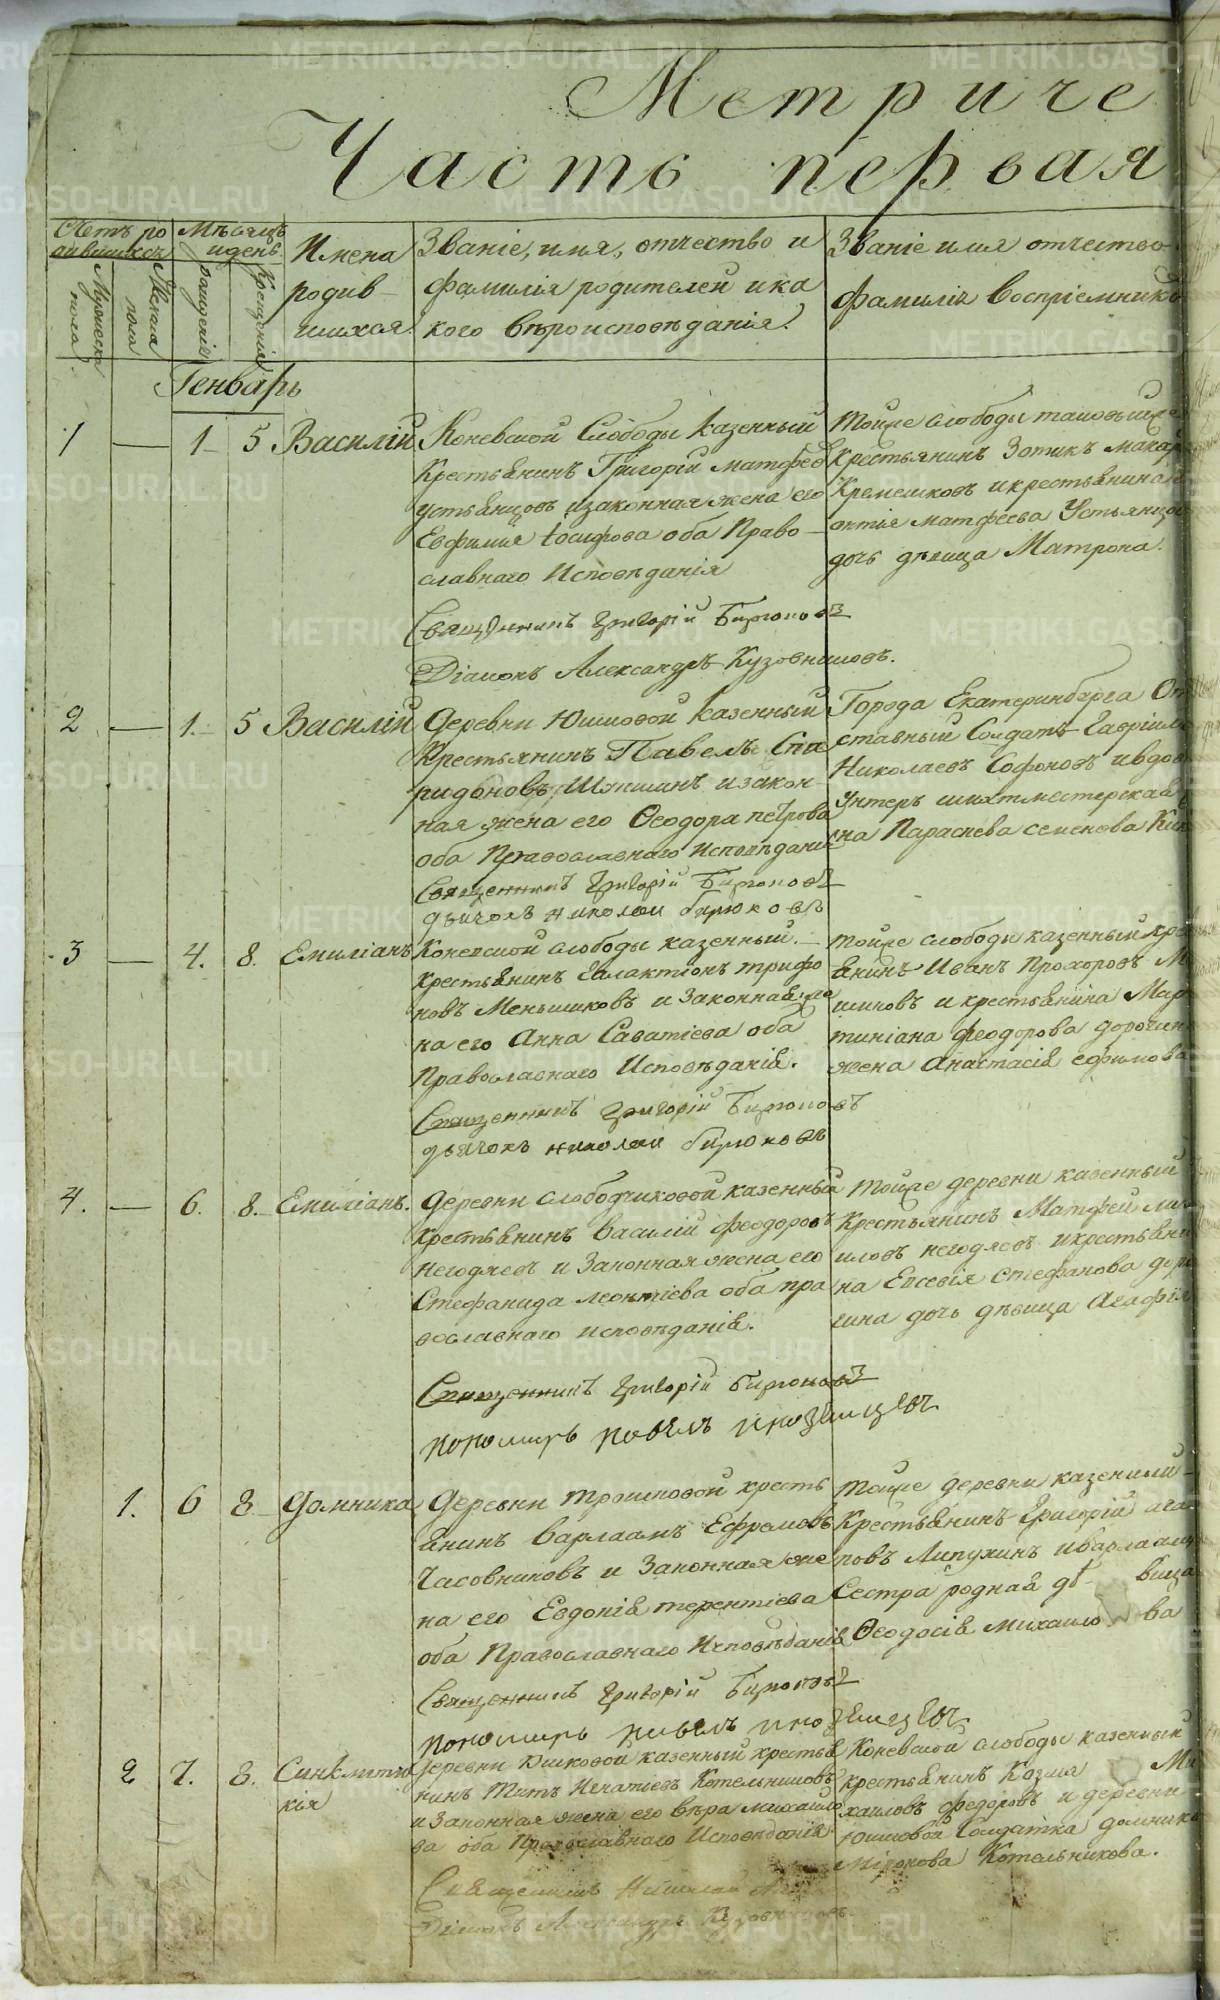 Метриче
Часть первая
Счетъ ро
дившихся
Мѣсяцъ
и день
Мужеска
пола
Женска
пола
рожденія
Крещенія
Имена
родив-
шихся
Званіе, имя, отчество и
фамилія родителей и ка
кого вѣроисповѣданія.
Званіе имя отчество
фамилія Воспріемнико
Генварь
1 — 1 5 Василій
Коневской Слободы Казенный
Крестьянинъ Григорій Матфеев
устьянцовъ и законная жена его
Евфимия Іосифова оба Право-
славнаго Исповѣданія
Священникъ Григорій Бирюковъ
Діаконъ Александръ Кузовниковъ.
Тойже слободы
Крестьянинъ Зотикъ Макар
Кремешковъ и крестьянина
Матфеева Устьянцо
дочь дѣвица Матрона.
2 — 1. 5 Василій
Деревни Юшковой Казенный
Крестьянинъ Павелъ Спи
ридоновъ и закон-
ная жена его Ѳеодора петрова
оба Православнаго Исповѣдания
Священникъ Григорій Бирюковъ
дьячокъ николаи бирюковъ
Города Екатеринбурга От
ставный Солдатъ Гавріилъ
Николаевъ Софоновъ и вдов
Унтеръ шихтмейстерская
на Параскева семенова
3 — 4. 8. Емиліанъ
Коневской слободы казенный
крестьянинъ Галактіонъ трифо
новъ Меньшиковъ и Законная же
на его Анна Саватіева оба
Православнаго Исповѣданія.
Священникъ Григорій Бирюковъ
дьячокъ николаи бирюковъ
тойже слободы казенный кре
янинъ Иванъ Прохоровъ М
шиковъ и крестьянина Мар
тиніана феодорова
жена Анастасія ефимова
4. — 6. 8. Емиліанъ.
Деревни слободчиковой казенный
крестьянинъ Василій феодоровъ
негодяевъ и Законная жена его
Стефанида леонтіева оба пра
вославнаго исповѣданія.
Священникъ Григорій Бирюковъ
пономарь павелъ иноземцевъ
Тойже деревни казенный
Крестьянинъ Матфей
иловъ негодяевъ и крестьяни
на Евсевія Стефанова
гина дочь дѣвица Агафія
1. 6 8 Домника
Деревни трошковой кресть
янинъ Варлаамъ Ефремовъ
Часовниковъ и Законная же
на его Евдокія терентіева
оба Православнаго Исповѣданія
Священникъ Григорій Бирюковъ
пономарь павелъ иноземцевъ
тойже деревни казенный
Крестьянинъ Григорій ага
повъ Липухинъ и варлаама
Сестра родная дѣвица
Ѳеодосія михаилова
2 7. 8. Синклити
кія
Деревни Юшковой казенный крестья
нинъ Титъ Игнатіевъ Котельниковъ
и Законная жена его Вѣра михаило
ва оба Православнаго Исповѣданія.
Священникъ Николай
Діаконъ Александръ Кузовниковъ.
Коневской слободы казенный
крестьянинъ Козма Ми
хаиловъ федоровъ и деревни
юшковой Солдатка домника
миронова Котельникова.